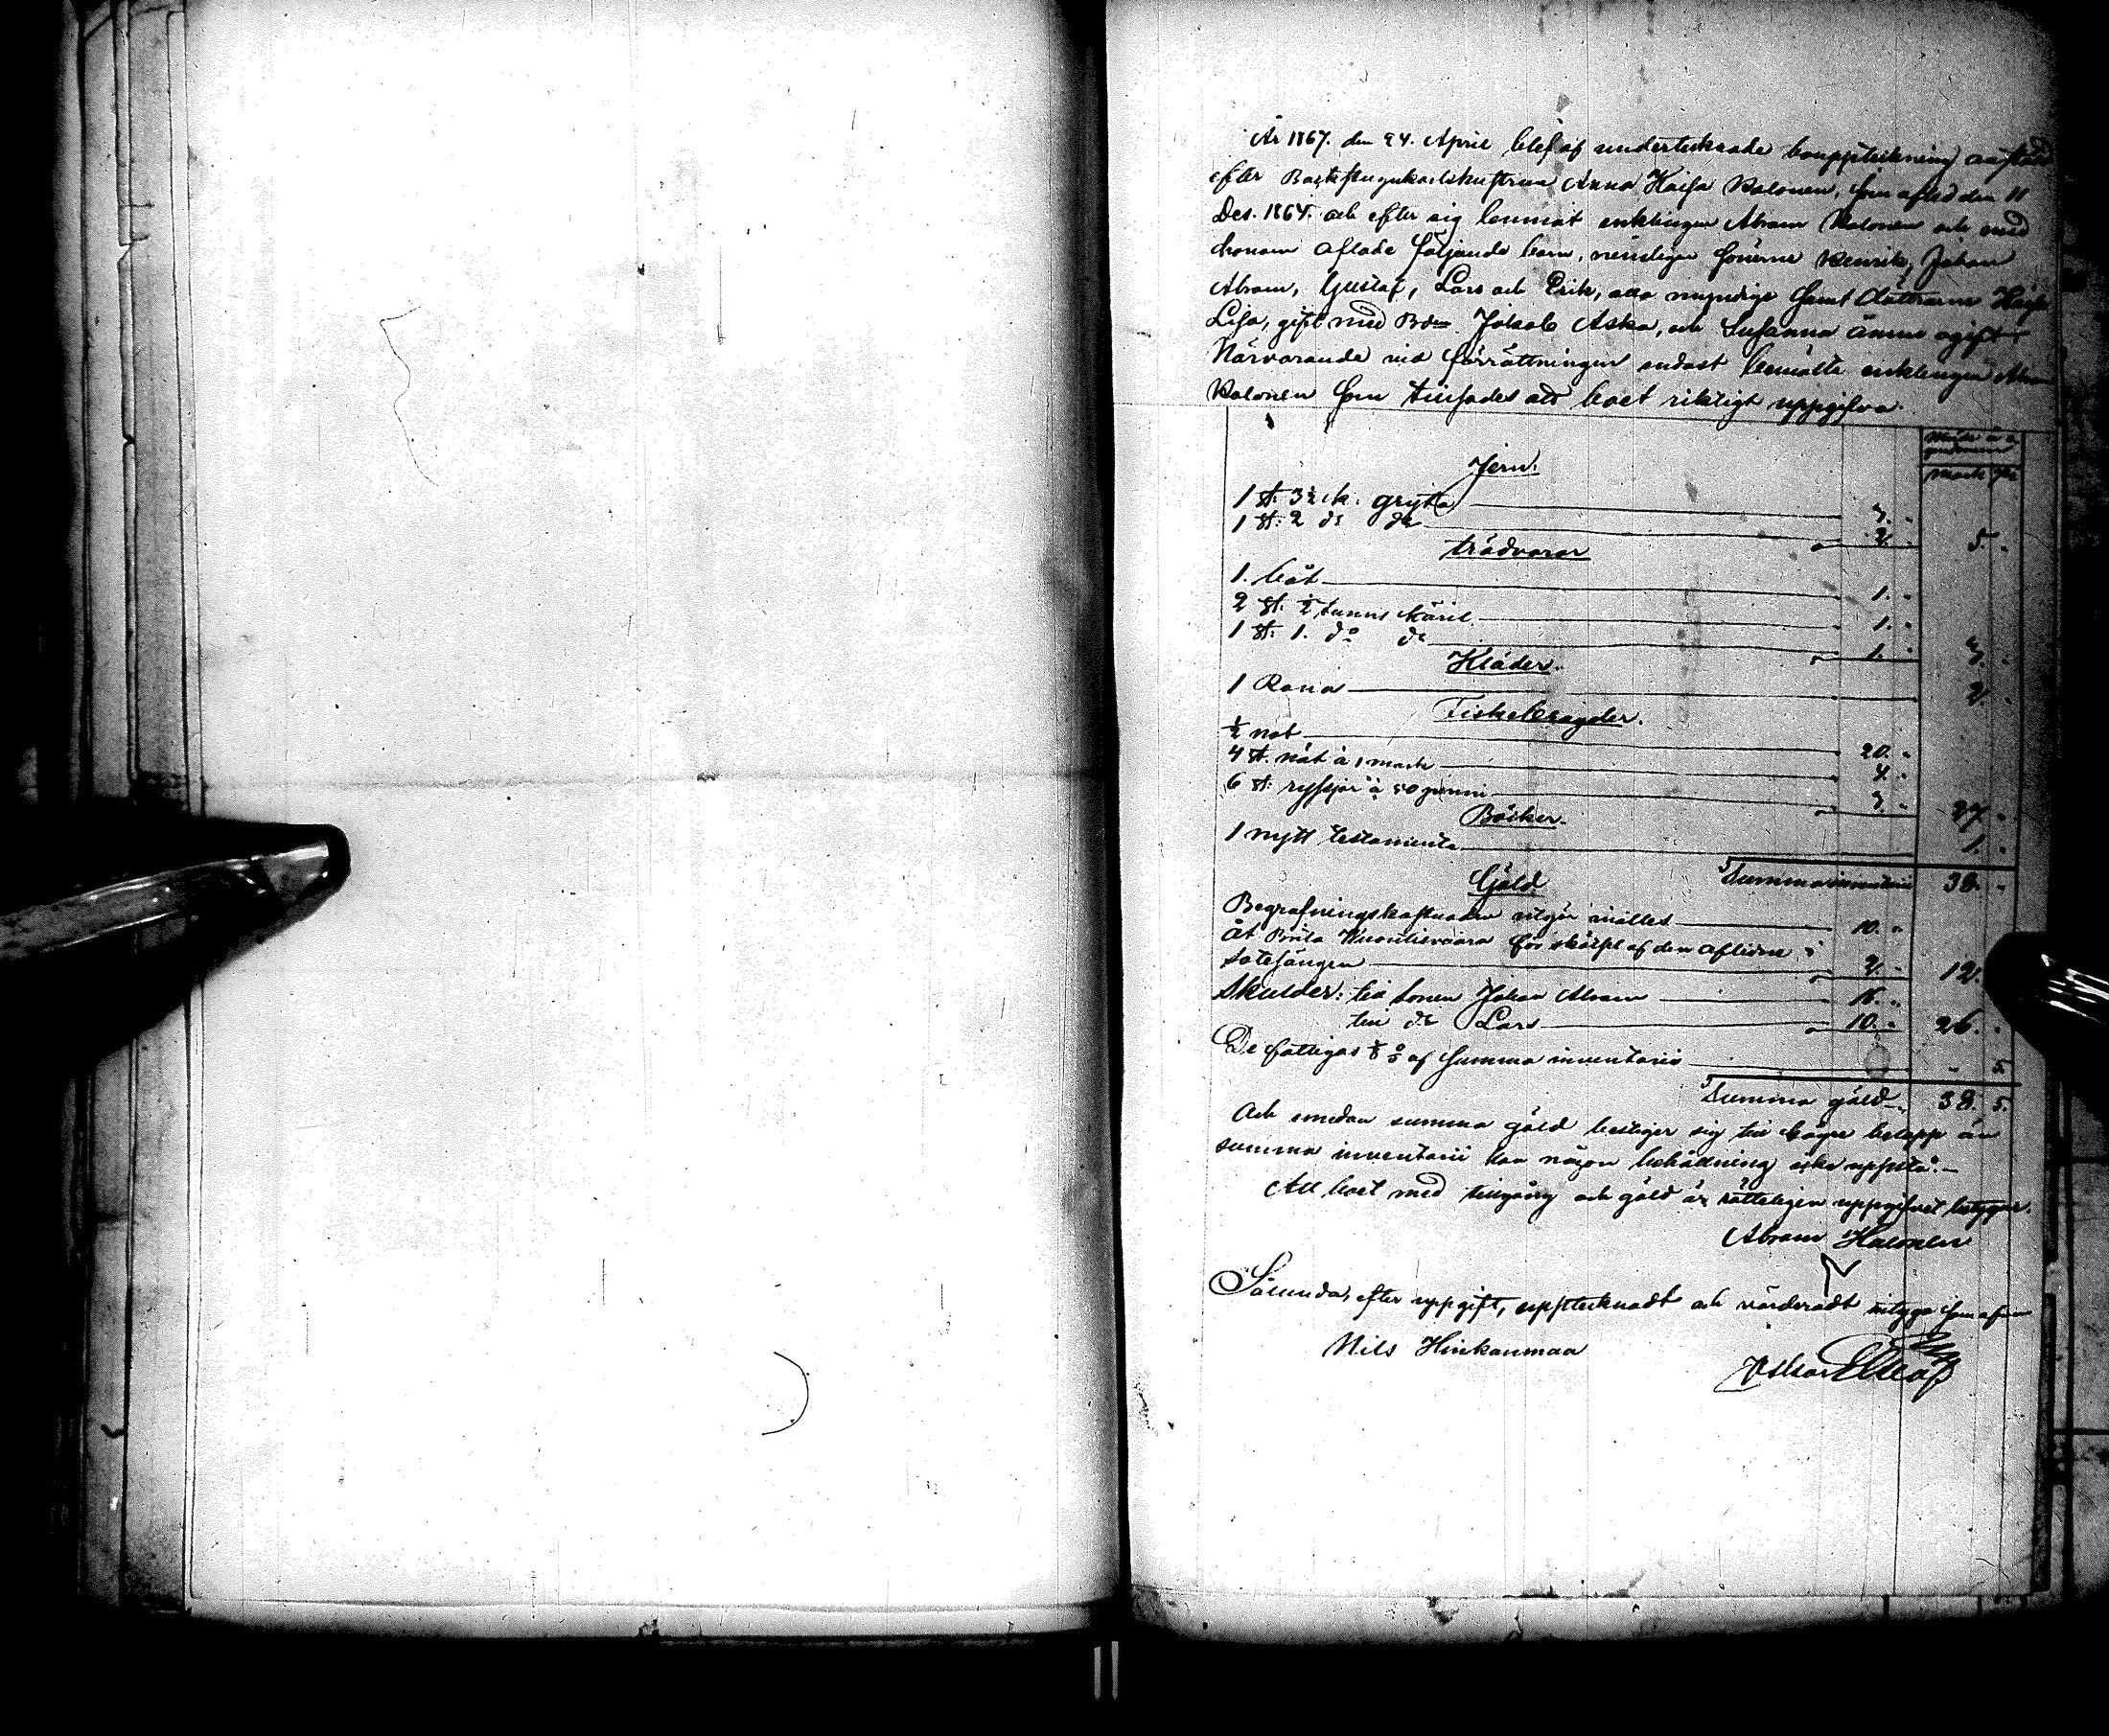 År 1867. den 24. April blef af undertecknade bouppteckning anstäld
efter Backstuguka­rlshustrun Anna Kaisa Halonen, som afled den 11
Des. 1864. och efter sig lemnat enklingen Abram Halonen och med
honom aflade följande barn, nemligen Sönerne Henrik, Johan
Abram, Gustaf, Lars och Erik, alla myndige samt döttrarne Kaisa
Lisa, gift med Bden Jakob Aska, och Susanna ännu ogift
Närvarande vid förrättningen endast bemälte enklingen Abram
Halonen som tillsades att boet riktigt uppgifva.
Mark
Jern.
1 st: 3½ k. gryta 3. "
1 st: 2 do do 2. " 5. "
trädvaror
1. båt 1. "
2 st. ½ tunns käril 1. "
1 st: 1. do do 1. " 3. "
Kläder.
1 Rana 2. "
Fiskebragder.
½ not 20. "
4 st. nät à 1 mark 4. "
6 st: ryssjor à 50 penni 3. " 27. "
Böcker.
1 nytt testamente 1. "
Summa inventarii 38. "
Gäld
Begrafningskostnaden utgör målles 10. "
Åt Brita Vuontisvaara för skötsel af den aflidne i
sotesängen 2. " 12. "
Skulder: till sonen Johan Abram 16. "
till do Lars 10. " 26. "
De fattigas ⅛ % af Summa inventarii " 5.
Summa gäld 38. 5.
Och emedan summa gäld bestiger sig till högre belopp än
summa inventarii kan någon behållning icke uppstå. –
Att boet med tillgång och gäld är rätteligen uppgifvet betygar.
Abram Halonen
Sålunda, efter uppgift, upptecknadt och värderadt intyga
Nils Hinkanmaa
Oskar